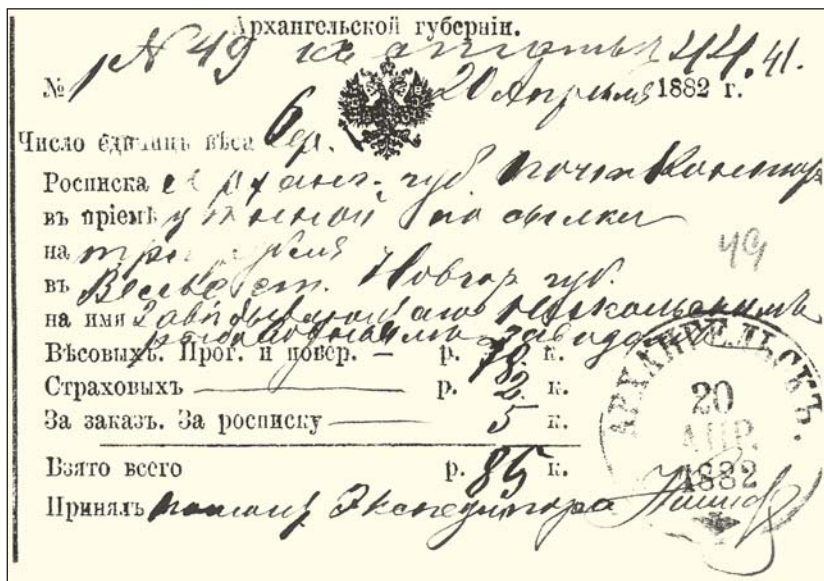 Архангельской губерніи.
№ 1 N 49 44.41.
20 Апрѣля 1882 г.
Число единицъ вѣса 6
Росписка Арханг. губ. почт. Контор
въ пріемѣ цѣнной посылки
на три рубля
въ ст. Новгор. губ.
на имя Завѣдывающаго Никольскимъ
рыбоводнымъ заводомъ
Вѣсовыхъ. Прог. и повер. — р. 78 к.
Страховыхъ — р. 2 к.
За заказъ. За росписку — 5 к.
Взято всего р. 85 к.
Принялъ помощ. Экспедитора
49
АРХАНГЕЛЬСКЪ.
20
АПР.
1882